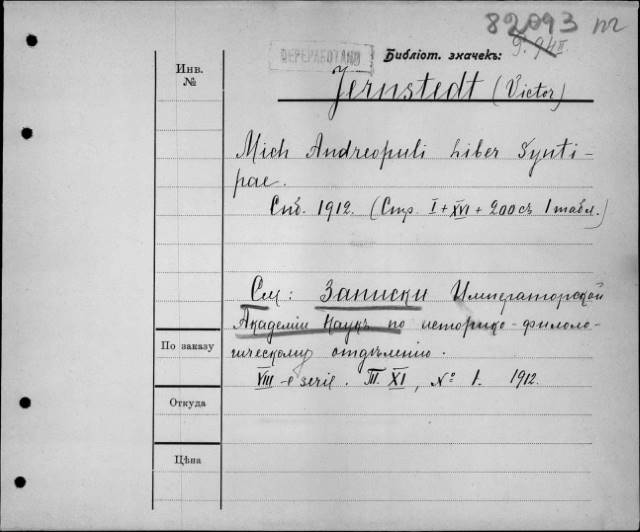 82093 пг
ПЕРЕРАБОТАНО
Библіот. значекъ:
Инв.
№
Jernstedt (Victor)
Mich Andreopuli Liber Synti-
pae.
Спб. 1912. (Стр. I + XVI + 200 съ 1 табл.)
См: Записки Императорской
Академіи Наукъ по историко-филоло-
гическому отдѣленію.
VIII-e serie. Т. XI, № 1. 1912.
По заказу
Откуда
Цѣна